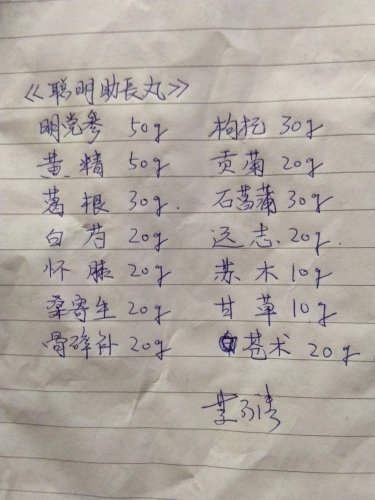 《聪明助长丸》
明党参 50g 枸杞 30g
黄精 50g 贡菊 20g
葛根 30g. 石菖蒲 30g
白芍 20g 远志 20g.
怀膝 20g 苏木 10g
桑寄生 20g 甘草 10g
骨碎补 20g 苍术 20g